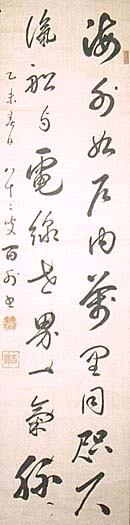 海外如内萬里同咫尺
滊船与電線世界一氣脉
乙未春日 八十二叟 百